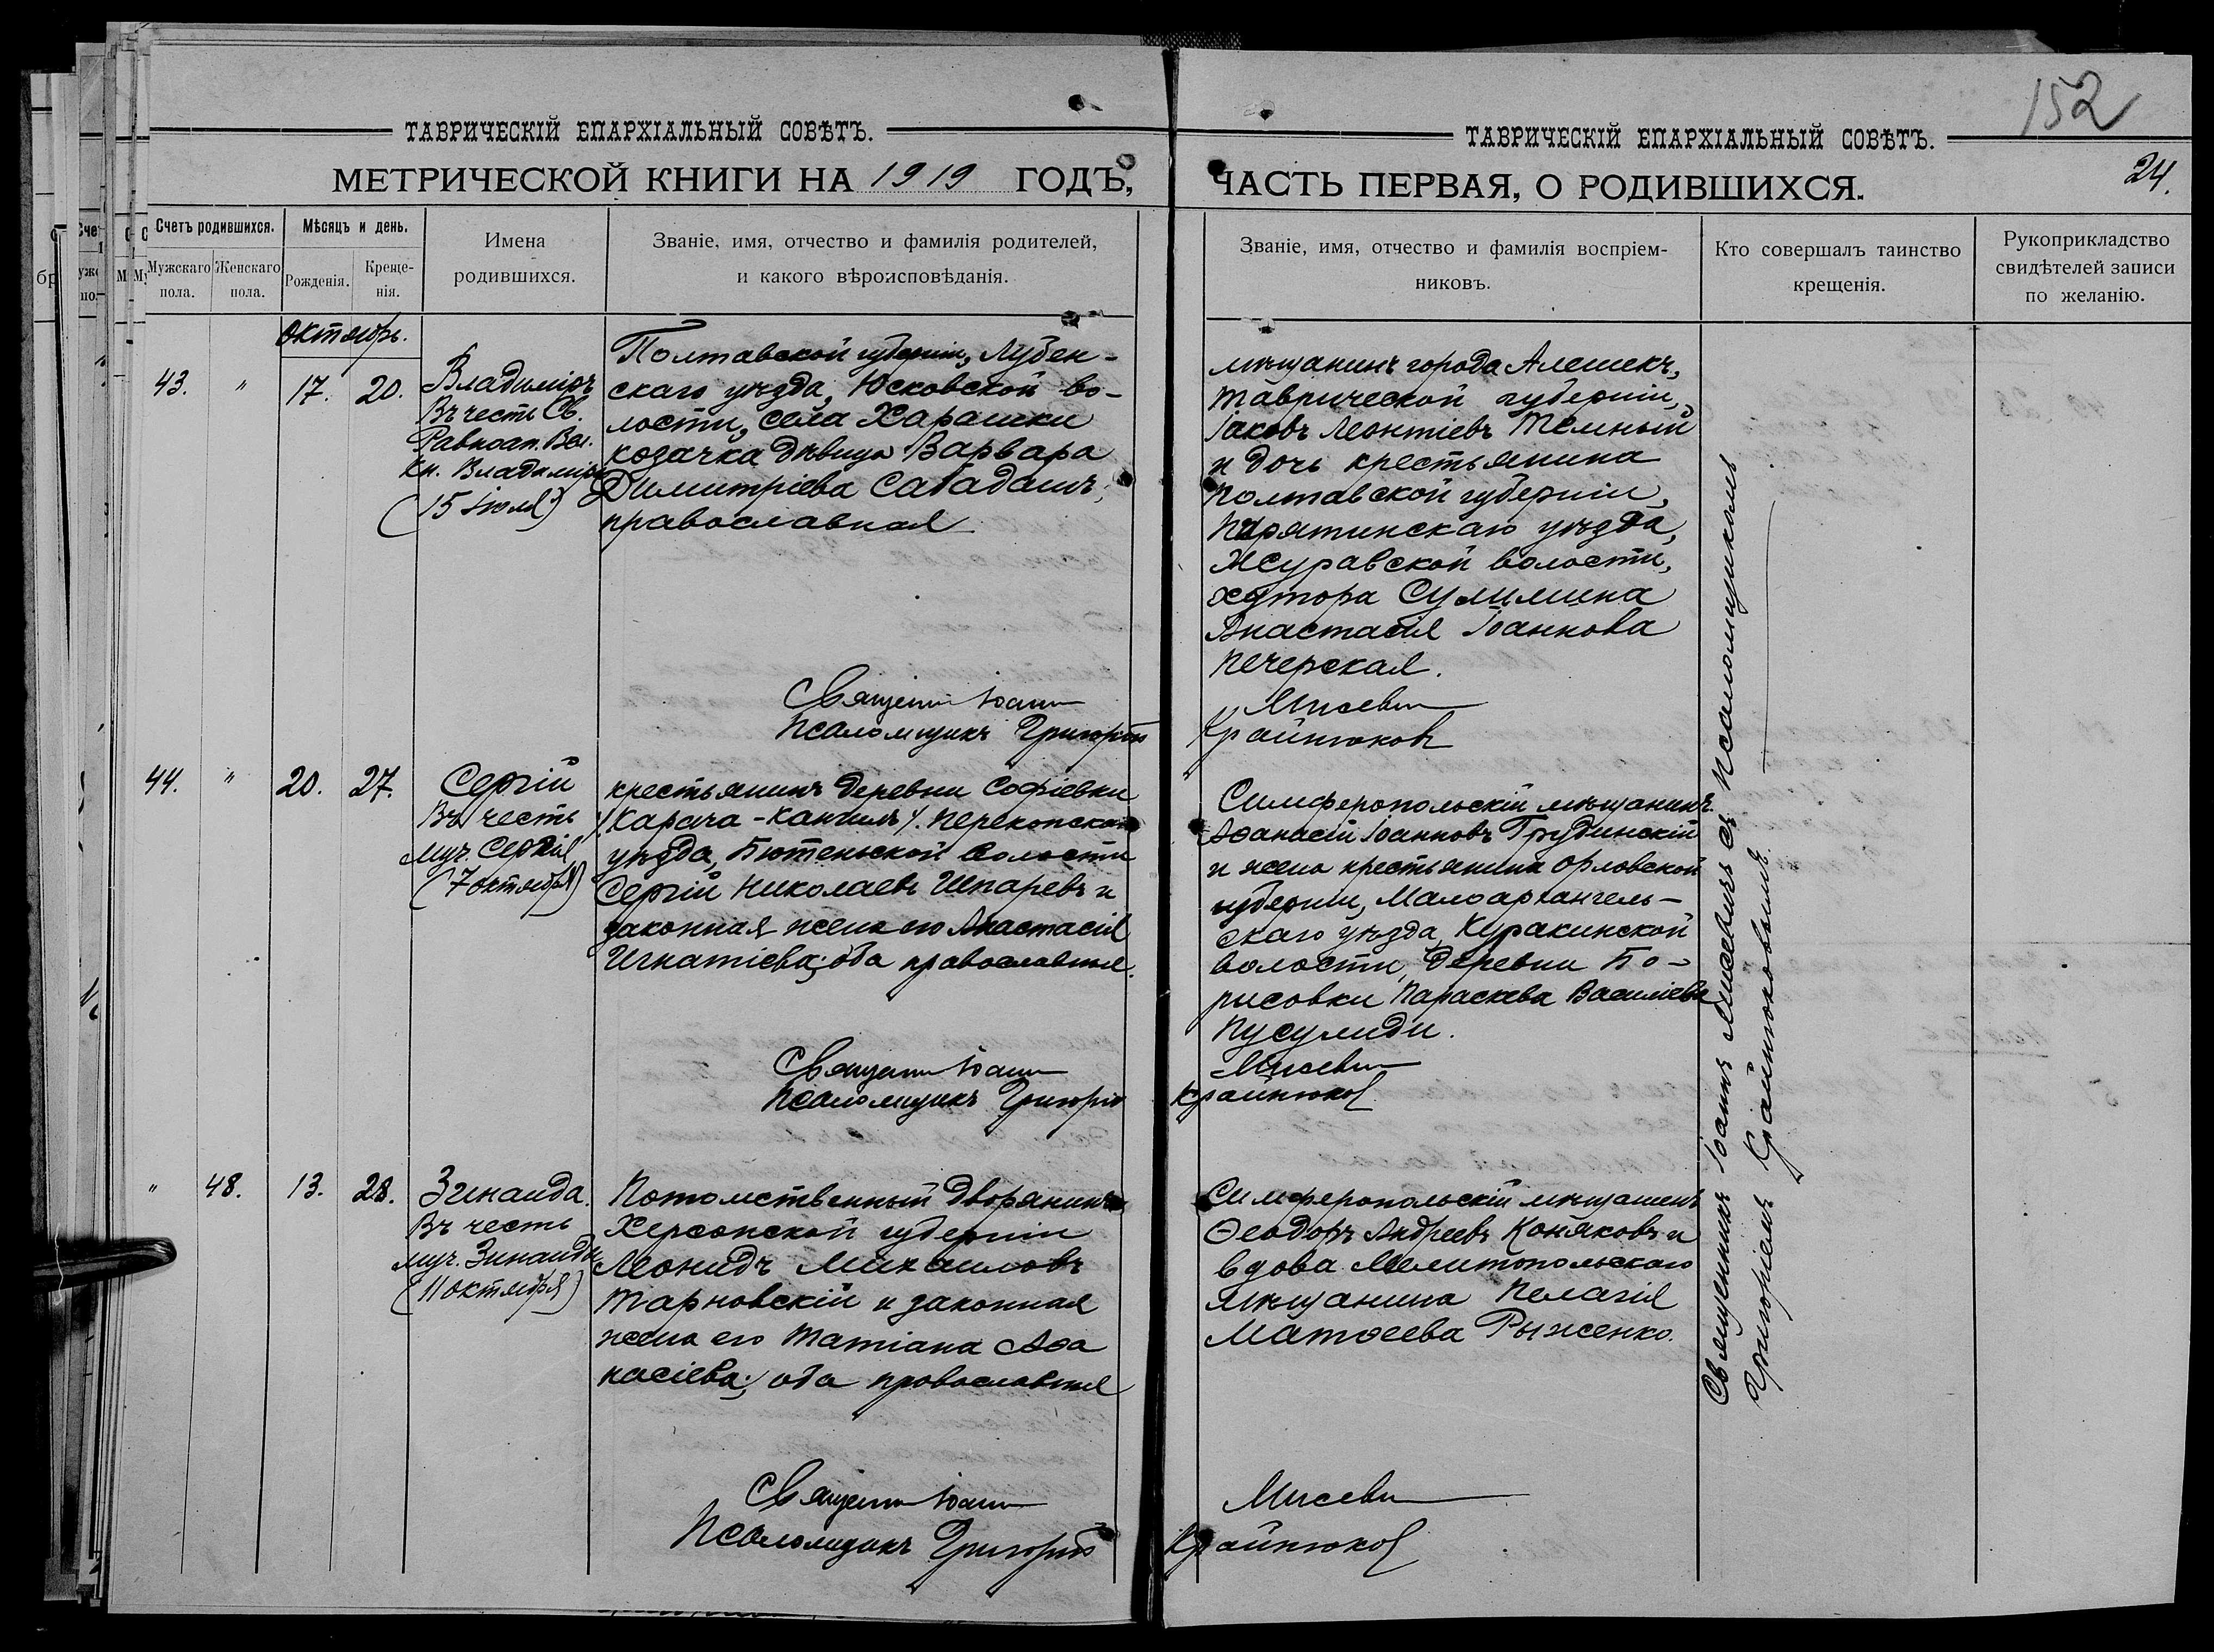 152
ТАВРИЧЕСКІЙ ЕПАРХІАЛЬНЫЙ СОВѢТЪ.
МЕТРИЧЕСКОЙ КНИГИ НА 1919 ГОДЪ,
Счетъ родившихся.
Мужскаго пола.
Женскаго пола.
Мѣсяцъ и день.
Рожденія.
Креще-
нія.
Имена
родившихся.
Званіе, имя, отчество и фамилія родителей,
и какого вѣроисповѣданія.
Октябрь.
43. " 17. 20.
Владиміръ
Въ честь Св.
Равноап. Вел.
Кн. Владиміра
(15 іюля)
Полтавской губерніи, Лубен-
скаго уѣзда, Юсковской во-
лости, села Харашки
козачка дѣвица Варвара
Димитріева Сабадашъ;
православная
Священ Іоанн
Псаломщикъ Григорій
44. " 20. 27.
Сергій
Въ честь
муч. Сергія
(7 октября)
крестьянинъ деревни Софіевки
/Карача-Кангилъ/. Перекопскаго
уѣзда, Бютеньской волости
Сергій Николаевъ Шпаревъ и
законная жена его Анастасія
Игнатіева; оба православные.
Священ Іоанн
Псаломщикъ Григорій
" 48. 13. 28.
Зинаида.
Въ честь
муч. Зинаиды
(11 октября)
Потомственный дворянинъ
Херсонской губерніи
Леонидъ Михаиловъ
Тарновскій и законная
жена его Татіана Аѳа
насіева; оба православные
Священ Іоанн
Псаломщикъ Григорій
ТАВРИЧЕСКІЙ ЕПАРХІАЛЬНЫЙ СОВѢТЪ.
24.
ЧАСТЬ ПЕРВАЯ, О РОДИВШИХСЯ.
Званіе, имя, отчество и фамилія воспріем-
никовъ.
Кто совершалъ таинство
крещенія.
Рукоприкладство
свидѣтелей записи
по желанію.
мѣщанинъ города Алешекъ,
Таврической губерніи,
Іаковъ Леонтіевъ Темный
и дочь крестьянина
Полтавской губерніи,
Пирятинскаго уѣзда,
Журавской волости,
хутора Сулимина
Анастасія Іоаннова
Печерская.
Мисевич
Крайнюковъ
Симферопольскій мѣщанинъ
Аѳанасій Іоанновъ Грудинскій
и жена крестьянина Орловской
губерніи, Малоархангель-
скаго уѣзда, Куракинской
волости, деревни Бо-
рисовки Параскева Василіева
Пусулиди.
Мисевич
Крайнюков
Симферопольскій мѣщанинъ
Ѳеодоръ Андреевъ Коняковъ и
вдова Мелитопольскаго
мѣщанина Пелагія
Матѳеева Рыженко.
Мисевич
Крайнюков
Священникъ Іоаннъ Мисевичъ съ Псаломщикомъ
Григоріемъ Крайнюковымъ.